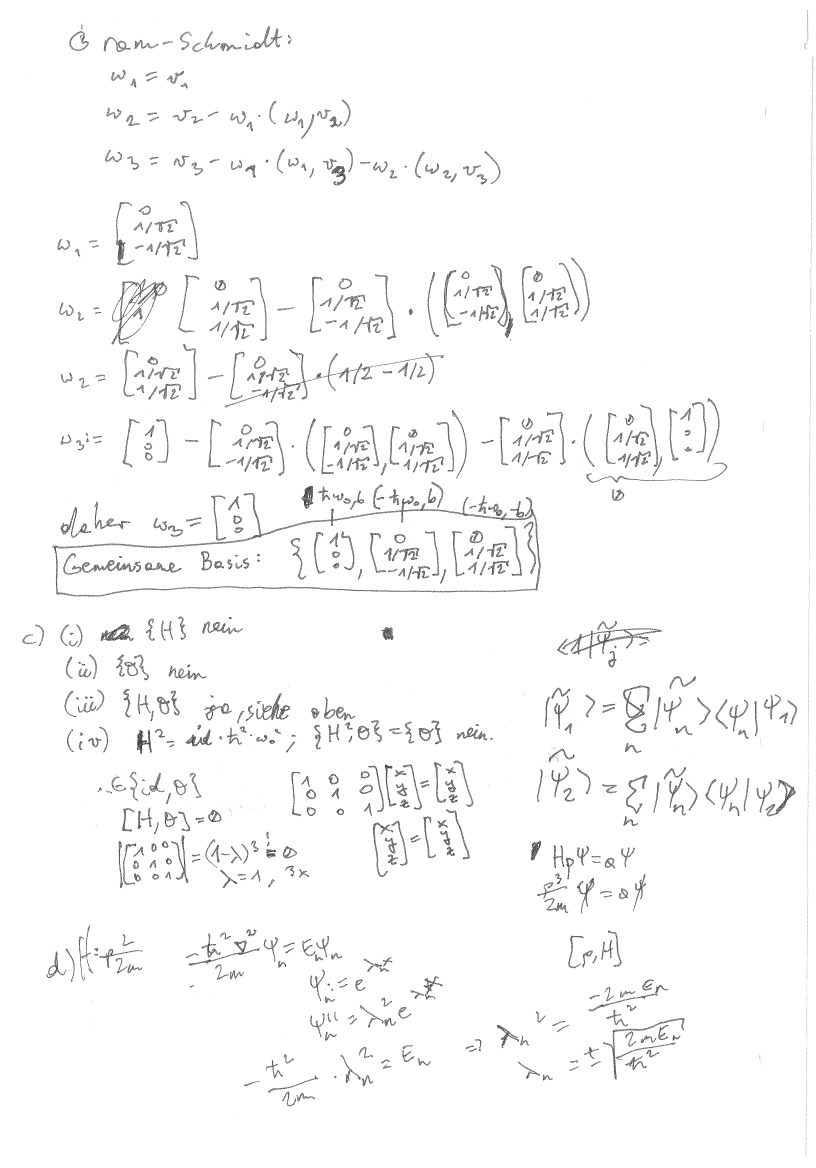 Gram-Schmidt:
w₁ = v₁
w₂ = v₂ - w₁ · (w₁, v₂)
w₃ = v₃ - w₁ · (w₁, v₃) - w₂ · (w₂, v₃)
w₁ = [0 1/√2 -1/√2]
w₂ = [0 1/√2 1/√2] - [0 1/√2 -1/√2] · ([0 1/√2 -1/√2], [0 1/√2 1/√2])
w₂ = [0 1/√2 1/√2] - [0 1/√2 -1/√2] · (1/2 - 1/2)
w₃ := [1 0 0] - [0 1/√2 -1/√2] · ([0 1/√2 -1/√2], [0 1/√2 1/√2]) - [0 1/√2 1/√2] · ([0 1/√2 1/√2], [1 : .])
0
daher w₃ = [1 0 0]
ħω₀, b (-ħω₀, b) (-ħω₀, -b)
Gemeinsame Basis: {[1 0 0], [0 1/√2 -1/√2], [0 1/√2 1/√2]}
c) (i) {H} nein
(ii) {θ} nein
(iii) {H, θ} ja, siehe oben
(iv) H² = id · ħ² · ω₀²; {H², θ} = {θ} nein.
∈ {id, θ}
[H, θ] = 0
[1 0 0 0 1 0 0 0 1] [x y z] = [x y z]
[x y z] = [x y z]
|[1 0 0 0 1 0 0 0 1]| = (1-λ)³ != 0
λ = 1, 3x
|ψ̃₁⟩ = Σₙ |ψ̃ₙ⟩⟨ψₙ|ψ₁⟩
|ψ̃₂⟩ = Σₙ |ψ̃ₙ⟩⟨ψₙ|ψ₂⟩
Hpψ = aψ
p³/2m ψ = aψ
[p, H]
d) H = p²/2m
-ħ²∇²/2m ψₙ = Eₙψₙ
ψₙ := e^(λₙx)
ψₙ'' = λₙ² e^(λₙx)
-ħ²/2m · λₙ² = Eₙ ⇒ λₙ² = -2mEₙ/ħ²
λₙ = ± √(2mEₙ/ħ²)